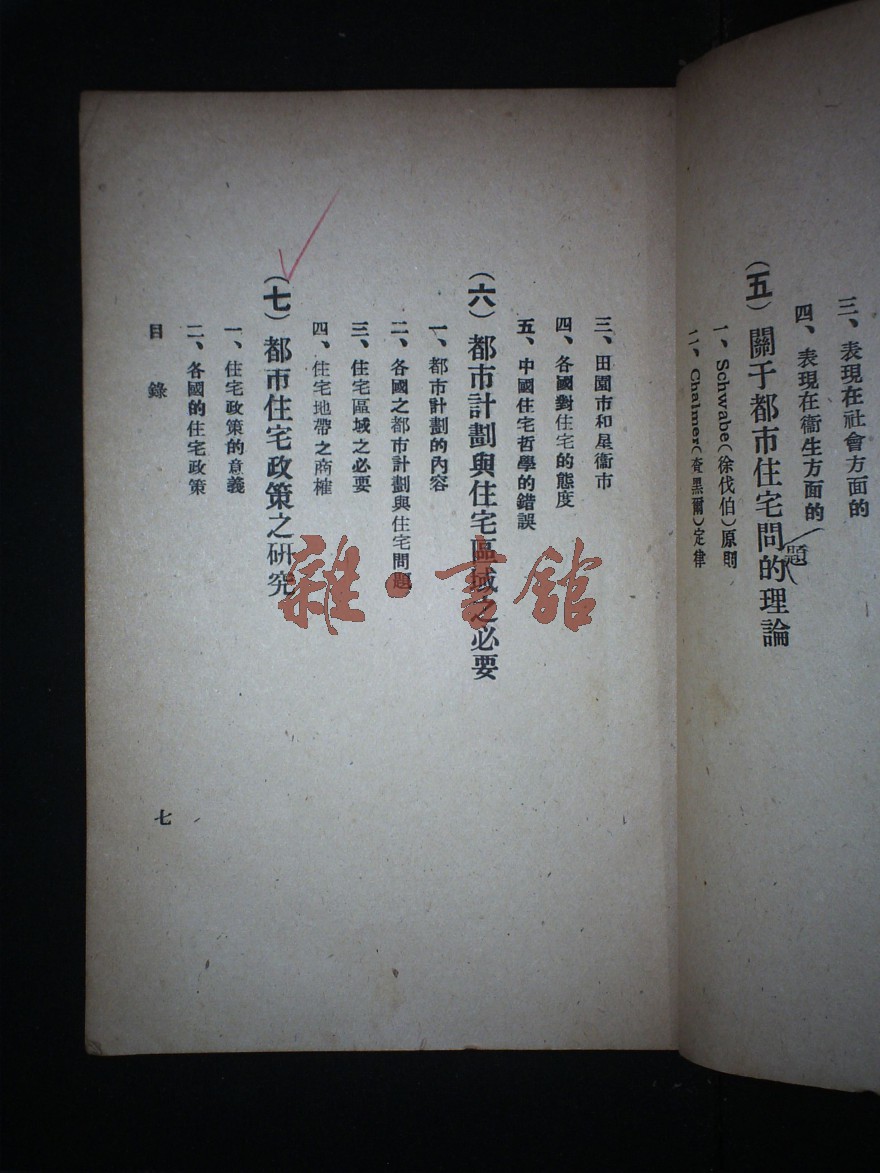 三、表現在社會方面的
四、表現在衞生方面的
（五）關于都市住宅問的理論
題
一、Schwabe（徐伐伯）原則
二、Chalmer（査黑爾）定律
三、田園市和星衞市
四、各國對住宅的態度
五、中國住宅哲學的錯誤
（六）都市計劃與住宅區域之必要
一、都市計劃的內容
二、各國之都市計劃與住宅問題
三、住宅區域之必要
四、住宅地帶之商榷
（七）都市住宅政策之研究
一、住宅政策的意義
二、各國的住宅政策
目錄
七
雜·書館